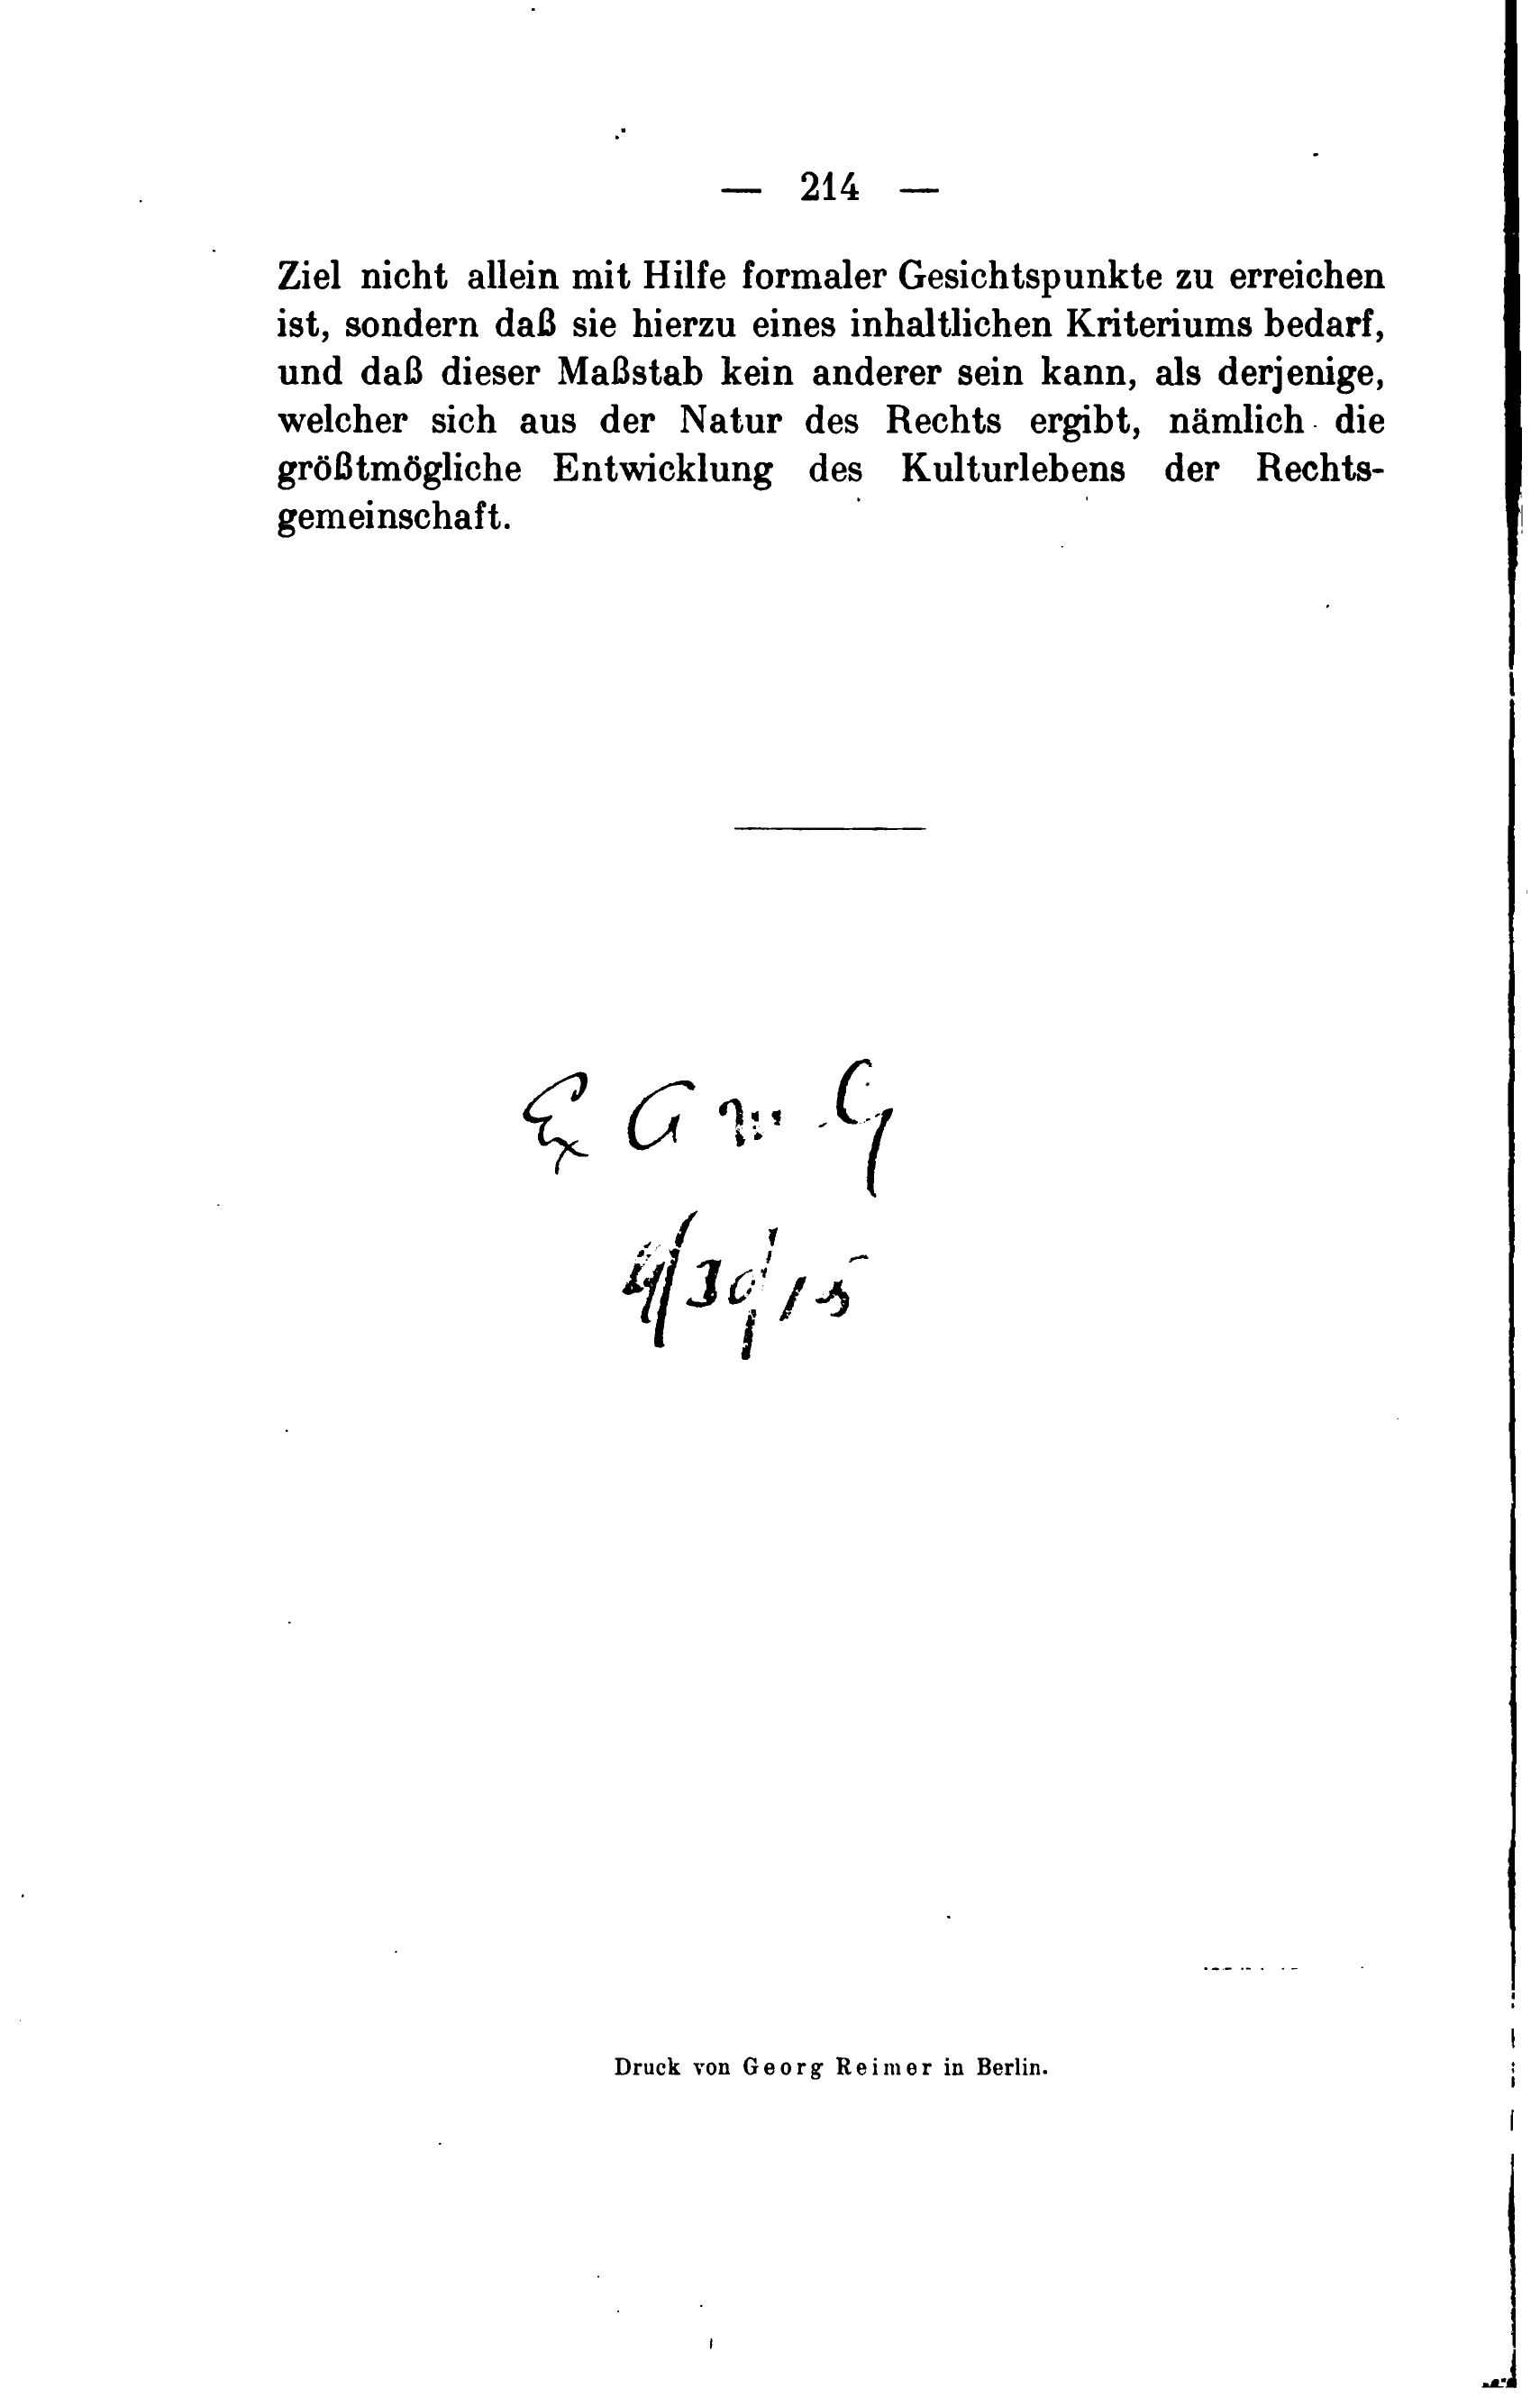 — 214 —
Ziel nicht allein mit Hilfe formaler Gesichtspunkte zu erreichen
ist, sondern daß sie hierzu eines inhaltlichen Kriteriums bedarf,
und daß dieser Maßstab kein anderer sein kann, als derjenige,
welcher sich aus der Natur des Rechts ergibt, nämlich die
größtmögliche Entwicklung des Kulturlebens der Rechts-
gemeinschaft.
4/30/15
Druck von Georg Reimer in Berlin.